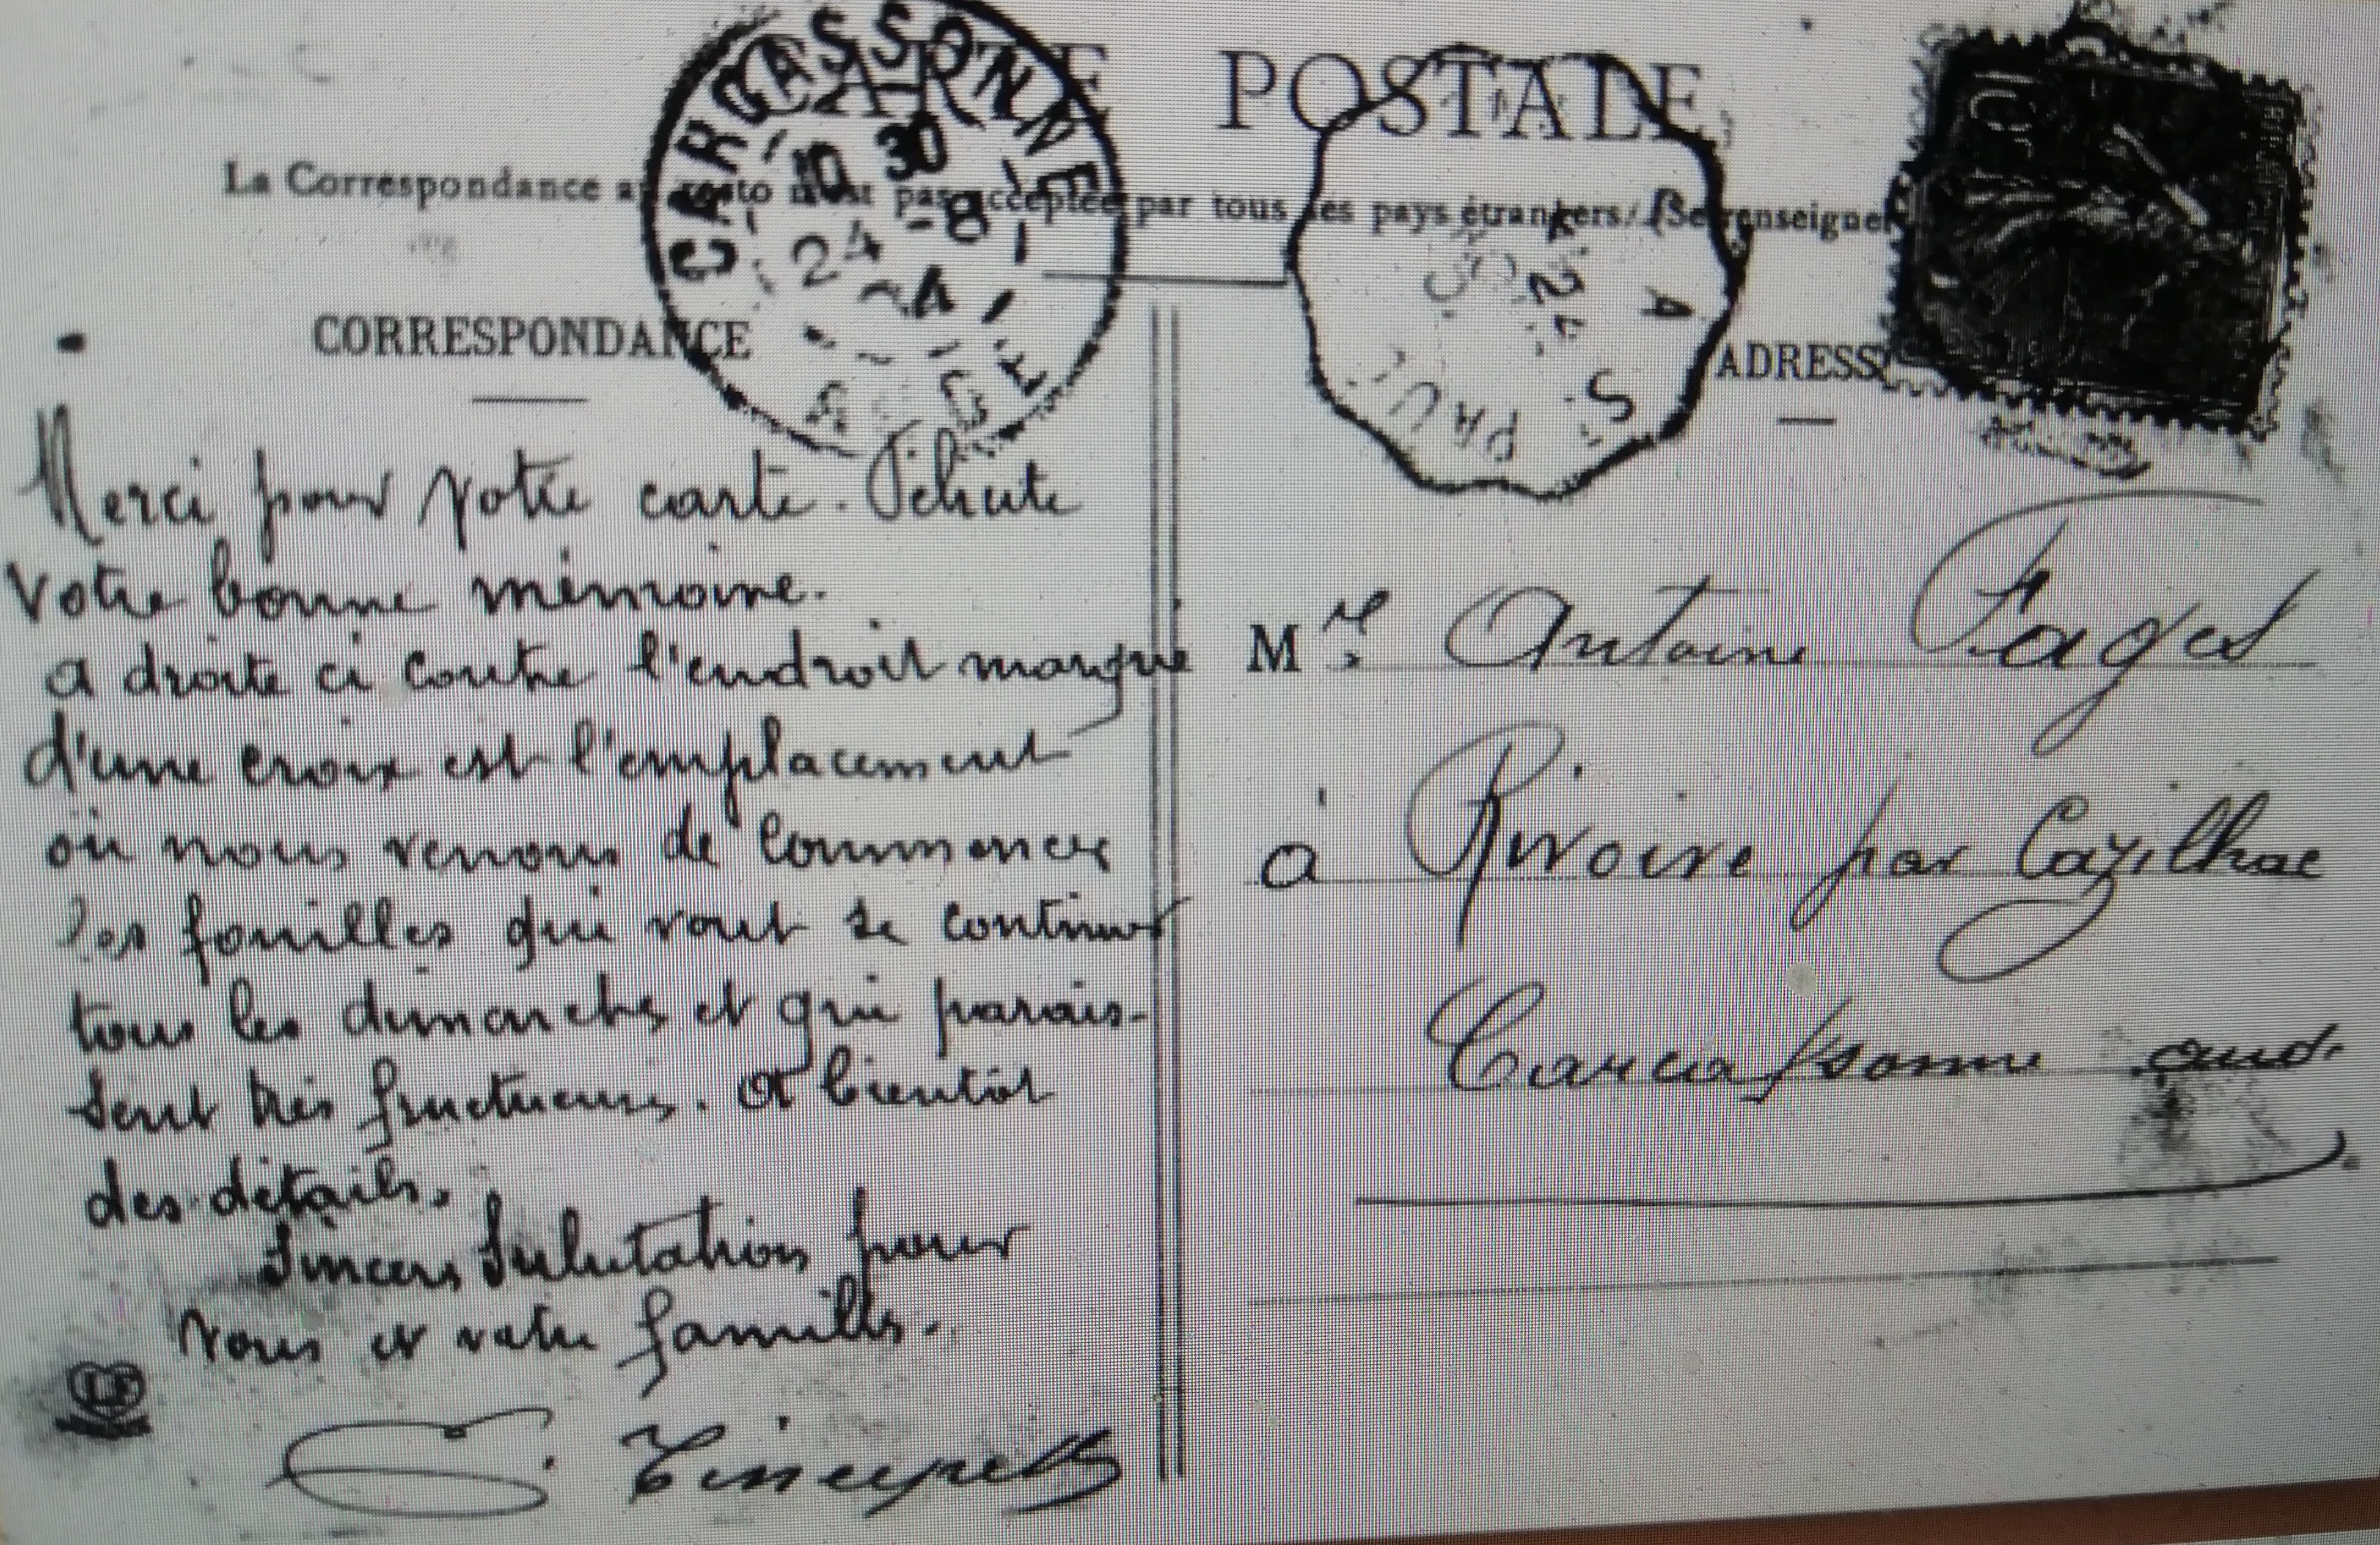 CARTE POSTALE
La Correspondance au recto n'est pas acceptée par tous les pays étrangers. (Se renseigner
CARCASSONNE
10 30
24 -8
CORRESPONDANCE
ADRESSE
Merci pour votre carte.
votre bonne mémoire.
a droite ci contre l'endroit marqué
d'une croix est l'emplacement
où nous venons de commencer
les fouilles qui vont se continuer
tous les dimanches et qui parais-
sent très fructueuses. A bientôt
des détails.
Sincères Salutations pour
Vous et votre famille.
Mr Antoine Fages
à par Cazilhac
Carcassonne aud.